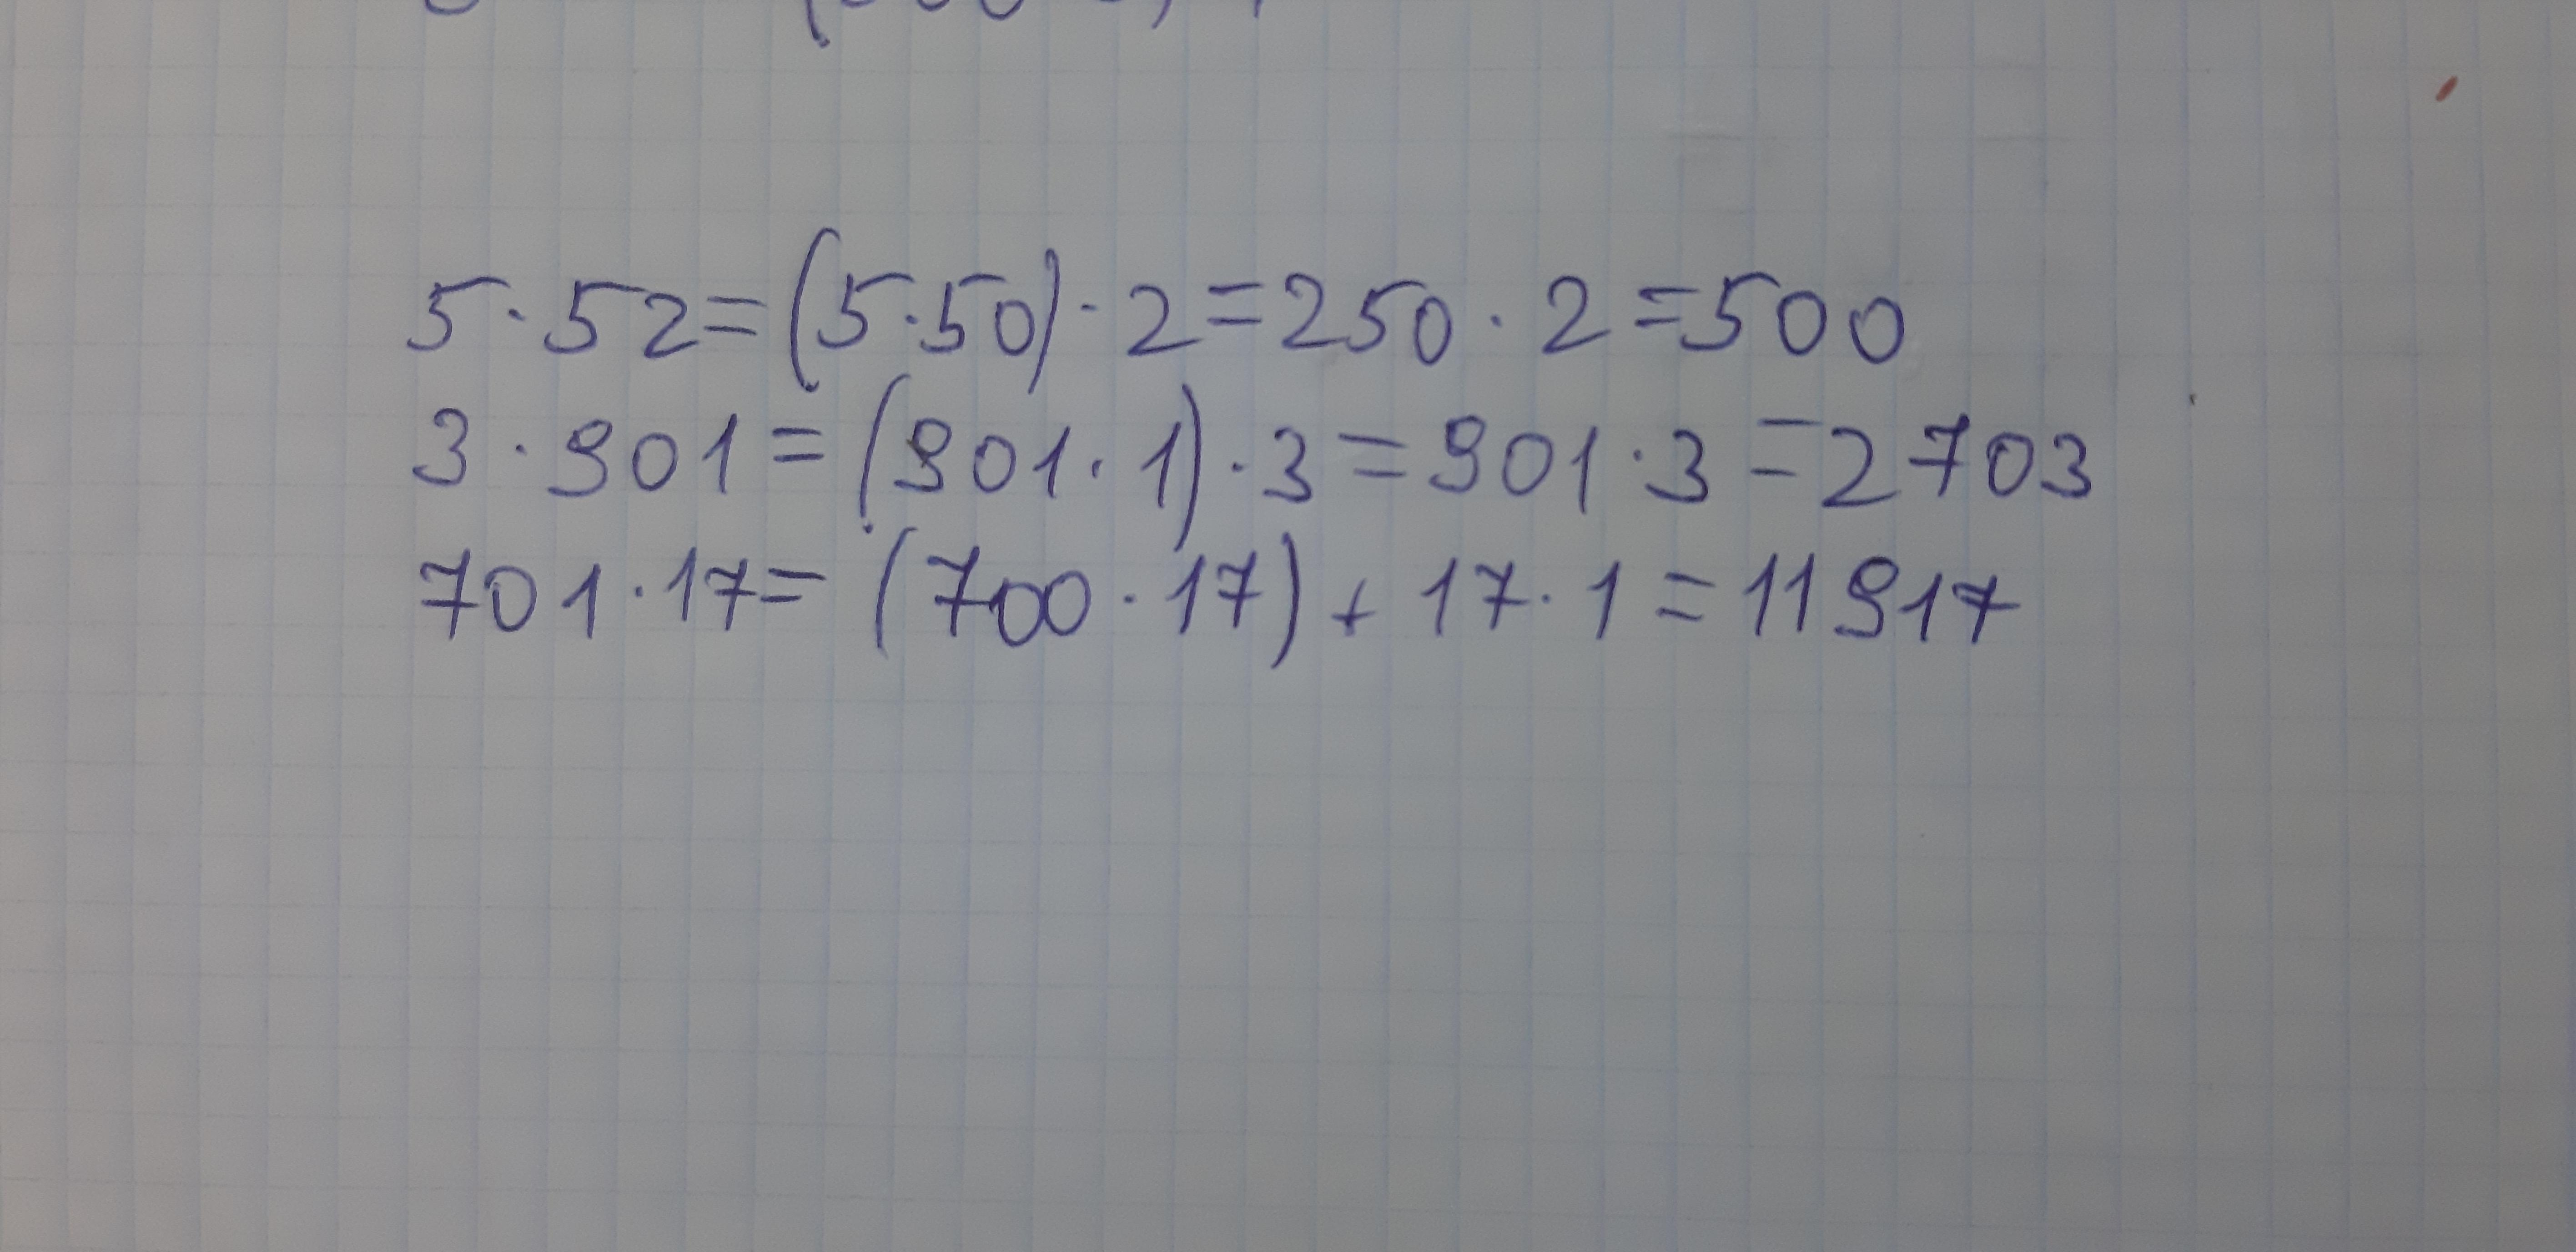 5·52=(5·50)·2=250·2=500
3·901=(901·1)·3=901·3=2703
701·17=(700·17)+17·1=11917